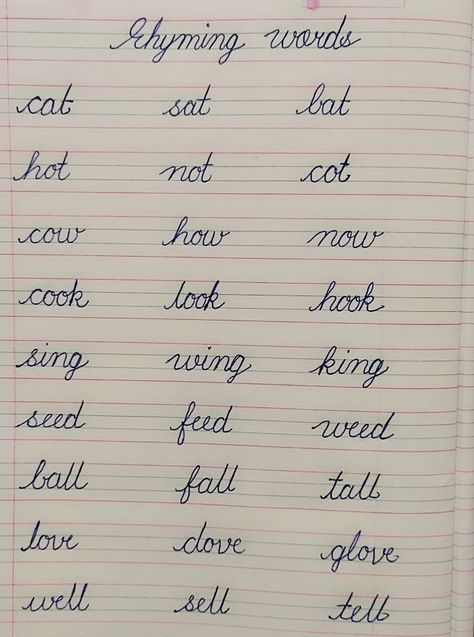 Rhyming words
cat sat bat
hot not cot
cow how now
cook look hook
sing wing king
seed feed weed
ball fall tall
love dove glove
well sell tell